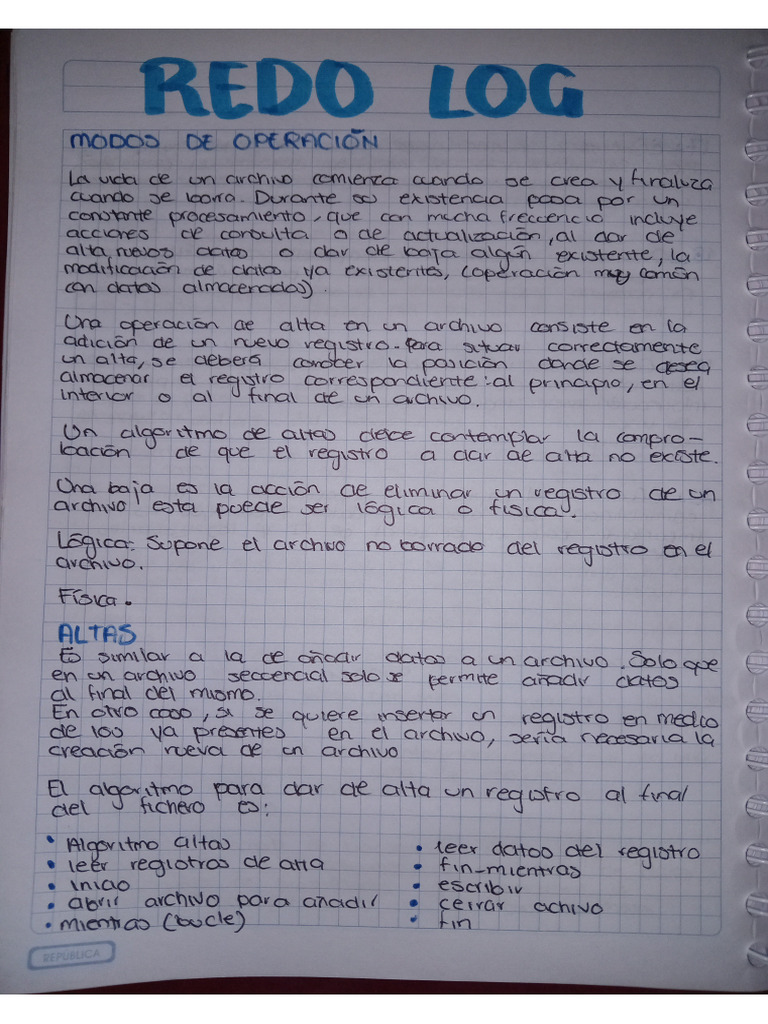 REDO LOG
MODOS DE OPERACIÓN
La vida de un archivo comienza cuando se crea y finaliza
cuando se borra. Durante su existencia pasa por un
constante procesamiento, que con mucha freccencia incluye
acciones de consulta o de actualización, al dar de
alta, nuevos datos o dar de baja algún existente, la
modificación de datos ya existentes, (operación muy común
con datos almacenados).
Una operación de alta en un archivo consiste en la
adición de un nuevo registro. Para situar correctamente
un alta, se deberá conober la posición donde se desea
almacenar el registro correspondiente: al principio, en el
interior o al final de un archivo.
Un algoritmo de altas debe contemplar la compro-
bación de que el registro a dar de alta no existe.
Una baja es la acción de eliminar un registro de un
archivo esta puede ser lógica o física.
Lógica: Supone el archivo no borrado del registro en el
archivo.
Física.
ALTAS
Es similar a la de añadir datos a un archivo. Solo que
en un archivo seccencial solo se permite añadir datos
al final del mismo.
En otro caso, si se quiere insertar un registro en medio
de los ya presentes en el archivo, sería necesaria la
creación nueva de un archivo
El algoritmo para dar de alta un registro al final
del fichero es:
• Algoritmo altas
• leer registros de alta
• inicio
• abrir archivo para añadir
• mientras (bucle)
• leer datos del registro
• fin_mientras
• escribir
• cerrar achivo
• fin
REPUBLICA